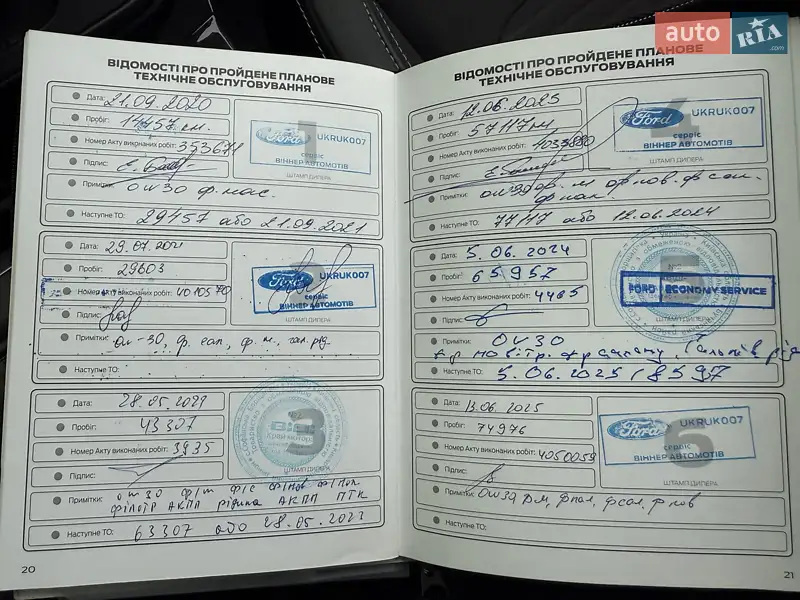 auto RIA .com
ВІДОМОСТІ ПРО ПРОЙДЕНЕ ПЛАНОВЕ
ТЕХНІЧНЕ ОБСЛУГОВУВАННЯ
Дата: 21.09.2020
Пробіг: 14457 км.
Номер Акту виконаних робіт: 353671
Підпис:
Примітки: ом 30 ф. мас.
Наступне ТО: 29457 або 21.09.2021
1
Ford UKRUK007
сервіс
ВІННЕР АВТОМОТІВ
ШТАМП ДИЛЕРА
Дата: 29.07.2021
Пробіг: 29603
Номер Акту виконаних робіт: 4010570
Підпис:
Примітки: ом-30, ф. сал, ф. м.,
Наступне ТО:
Ford UKRUK007
сервіс
ВІННЕР АВТОМОТІВ
ШТАМП ДИЛЕРА
Дата: 28.05.2022
Пробіг: 43307
Номер Акту виконаних робіт: 3935
Підпис:
Примітки: ом 30 ф/м ф/с ф/пов ф/пол
філотр АКПП рідина АКПП ПТК
Наступне ТО: 63307 або 28.05.2023
3
ШТАМП ДИЛЕРА
20
ВІДОМОСТІ ПРО ПРОЙДЕНЕ ПЛАНОВЕ
ТЕХНІЧНЕ ОБСЛУГОВУВАННЯ
Дата: 12.06.2023
Пробіг: 57117 км
Номер Акту виконаних робіт: 4033880
Підпис:
Примітки: ф. пов. ф. сал.
ф. пал.
Наступне ТО: 77117 або 12.06.2024
4
Ford UKRUK007
сервіс
ВІННЕР АВТОМОТІВ
ШТАМП ДИЛЕРА
Дата: 5.06.2024
Пробіг: 65957
Номер Акту виконаних робіт: 4465
Підпис:
Примітки: ОМ 30
Наступне ТО: 5.06.2025 / 85957
5
FORD ECONOMY SERVICE
ШТАМП ДИЛЕРА
Дата: 13.06.2025
Пробіг: 74976
Номер Акту виконаних робіт: 4050059
Підпис:
Примітки: фм, фпал, фсал, фпов
Наступне ТО:
6
Ford UKRUK007
сервіс
ВІННЕР АВТОМОТІВ
ШТАМП ДИЛЕРА
21